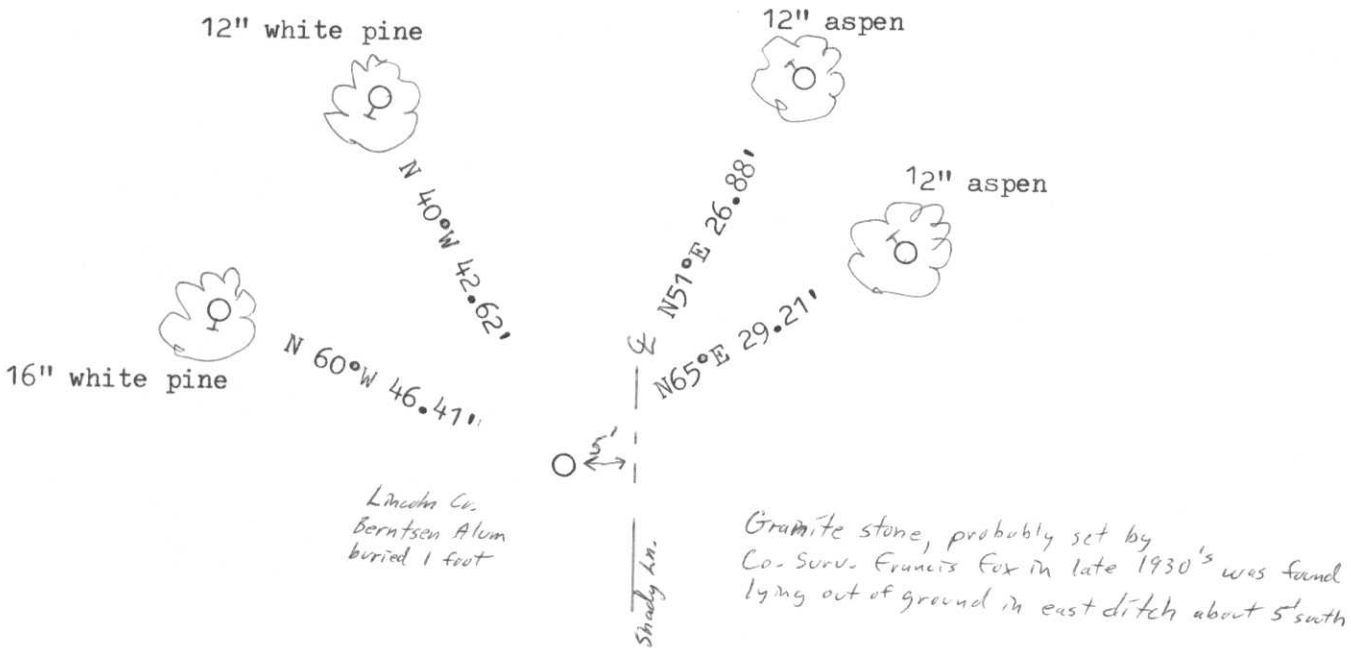 12" white pine
12" aspen
12" aspen
N 40°W 42.62'
N51°E 26.88'
N65°E 29.21'
16" white pine
N 60°W 46.41'
℄
5'
Lincoln Co.
Berntsen Alum
buried 1 foot
Shady Ln.
Granite stone, probably set by
Co. Surv. Francis Fox in late 1930's was found
lying out of ground in east ditch about 5' south